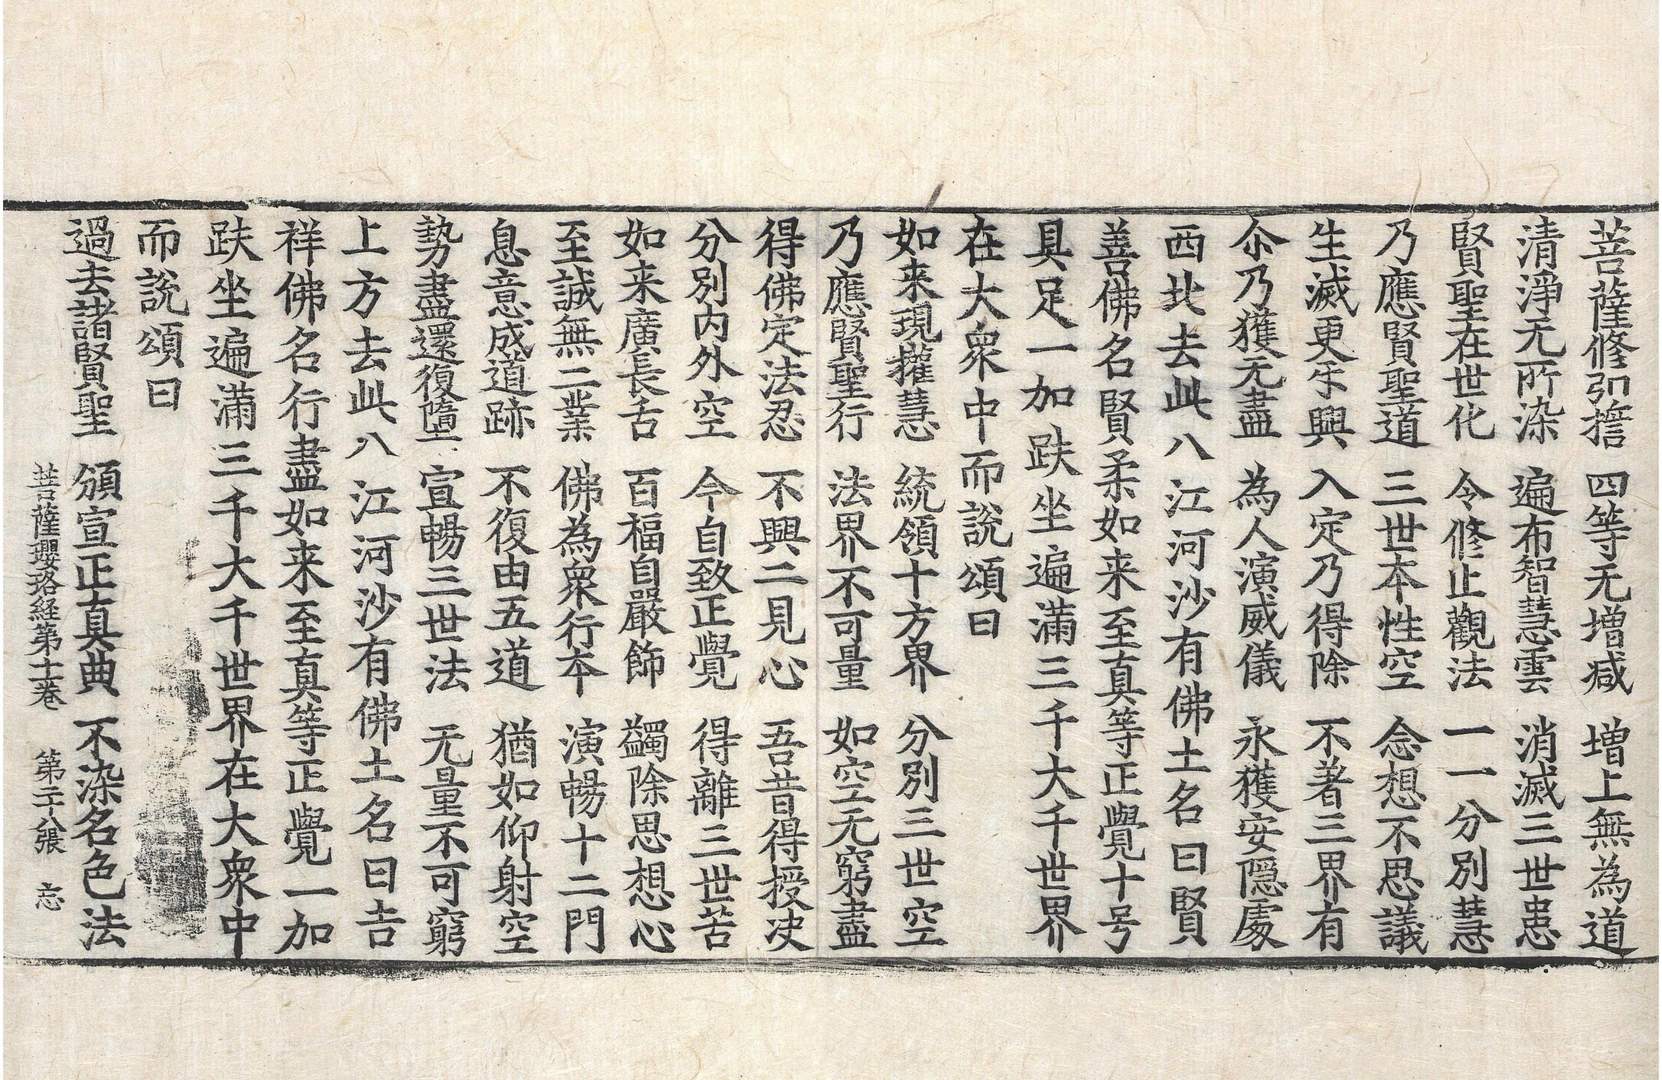 菩薩修弘擔 四等无增減 增上無為道
清淨无所染 遍布智慧雲 消滅三世患
賢聖在世化 令修止觀法 一一分別慧
乃應賢聖道 三世本性空 念想不思議
生滅更互興 入定乃得除 不著三界有
尒乃獲无盡 為人演威儀 永獲安隱處
西北去此八江河沙有佛土名曰賢
善佛名賢柔如来至真等正覺十号
具足一加趺坐遍滿三千大千世界
在大衆中而說頌曰
如来現權慧 統領十方界 分別三世空
乃應賢聖行 法界不可量 如空无窮盡
得佛定法忍 不興二見心 吾昔得授决
分別内外空 今自致正覺 得離三世苦
如来廣長舌 百福自嚴飾 蠲除思想心
至誠無二業 佛為衆行本 演暢十二門
息意成道跡 不復由五道 猶如仰射空
勢盡還復墮 宣暢三世法 无量不可窮
上方去此八江河沙有佛土名曰吉
祥佛名行盡如来至真等正覺一加
趺坐遍滿三千大千世界在大衆中
而說頌曰
過去諸賢聖 頒宣正真典 不染名色法
菩薩瓔珞経第十一卷 第二十八張 忘